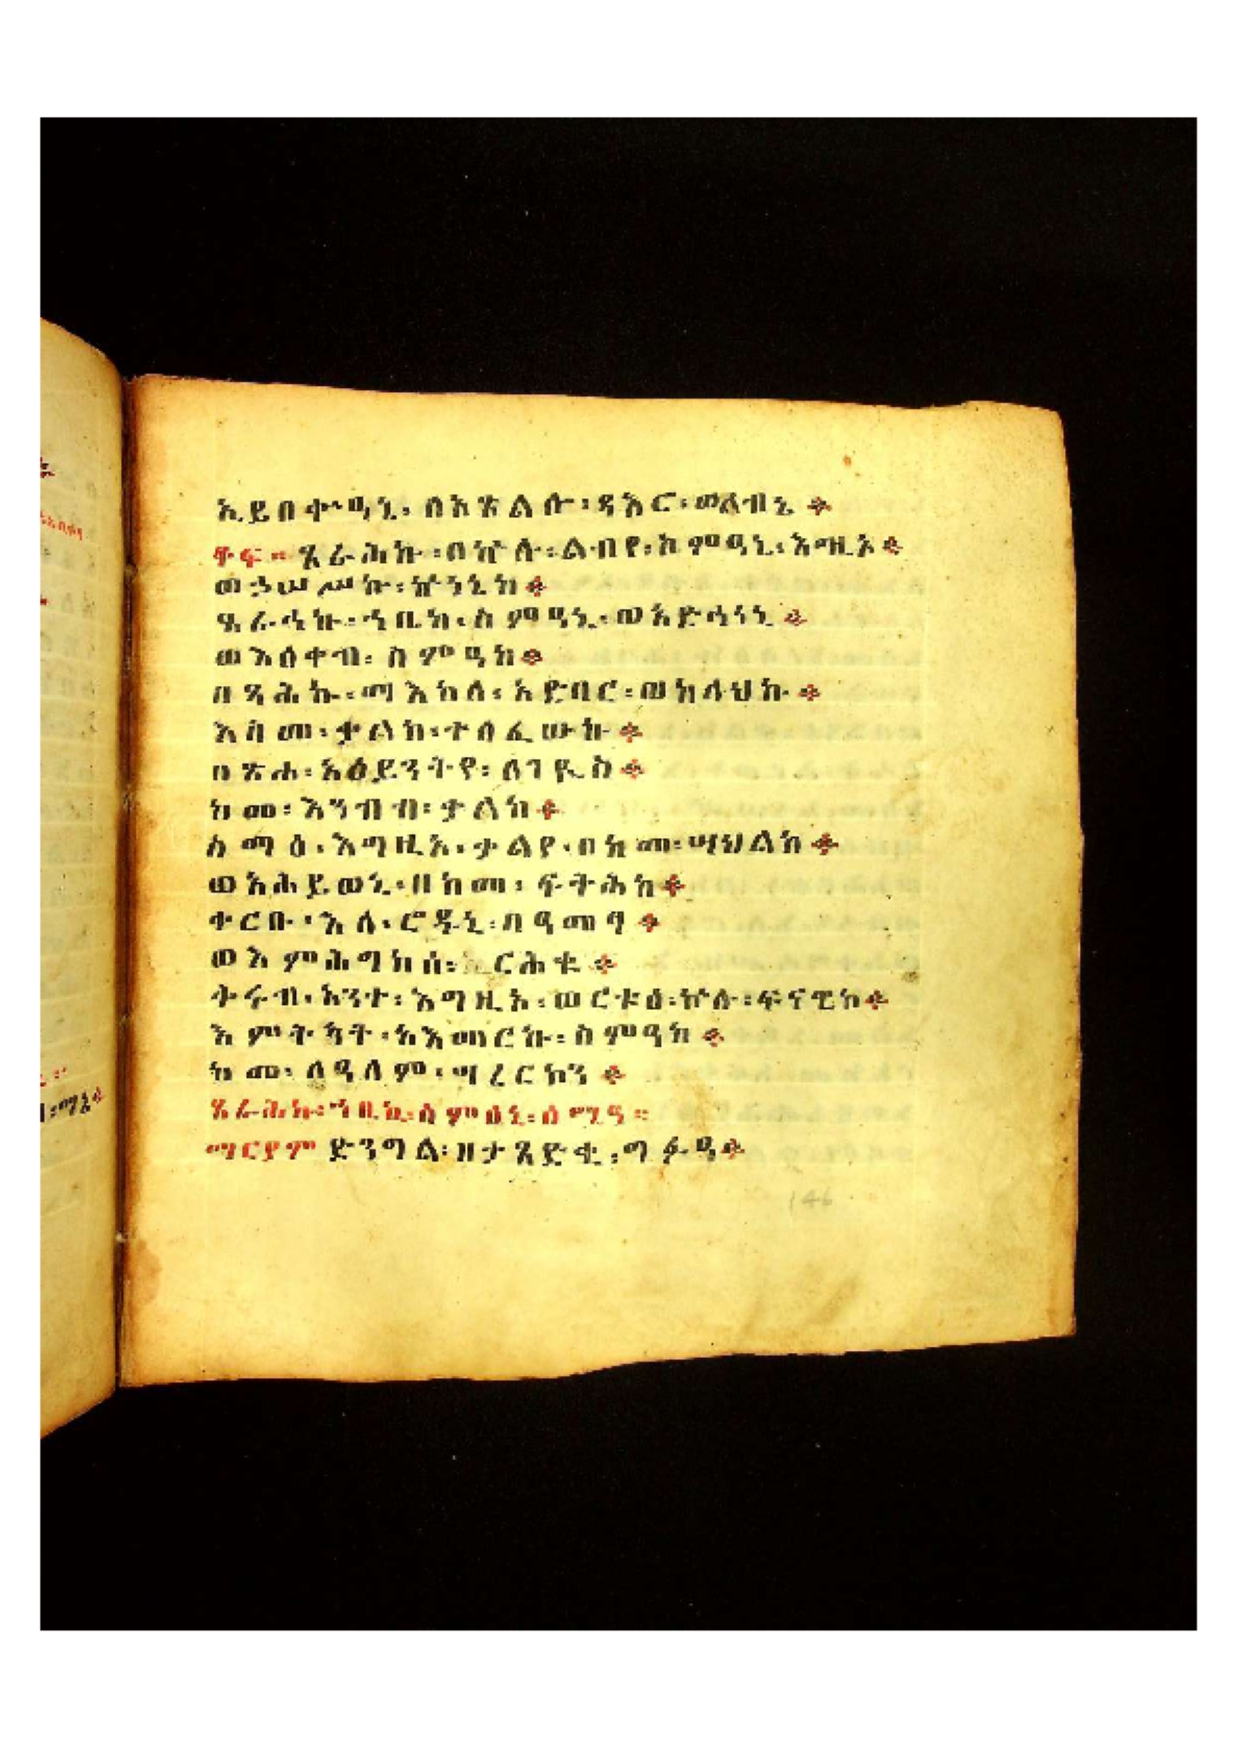 ኢይበቍዓኒ፡ በአጽልሱ፡ ዳእር፡ ወለብኒ ።
ቆፍ ። ጸራሕኩ ፡ በኵሉ ፡ ልብየ፡ ስምዓኒ፡ እግዚኦ ።
ወኃሠሥኩ ፡ ኵነኔከ ።
ጸራኅኩ ፡ ኀቤከ ፡ ስምዓኒ ፡ ወአድኅነኒ ።
ወእዕቀብ ፡ ስምዓከ ።
በጻሕኩ ፡ ማእከለ ፡ አድባር ፡ ወከላህኩ ።
እስመ ፡ ቃልከ ፡ ተሰፈውኩ ።
በጽሐ ፡ አዕይንትየ ፡ ለገይስ ።
ከመ ፡ እንብብ ፡ ቃለከ ።
ስማዕ ፡ እግዚኦ ፡ ቃልየ ፡ በከመ ፡ ሣህልከ ።
ወአሕይወኒ ፡ በከመ ፡ ፍትሕከ ።
ቀርቡ ፡ እለ ፡ ሮዱኒ ፡ በዓመፃ ።
ወእምሕግከሰ ፡ ርሕቁ ።
ቅሩብ ፡ አንተ ፡ እግዚኦ ፡ ወርቱዕ ፡ ኵሉ ፡ ፍናዊከ ።
እምትካት ፡ አእመርኩ ፡ ስምዓከ ።
ከመ ፡ ለዓለም ፡ ሣረርኮን ።
ጸራሕኩ ፡ ኀቤኪ ፡ ስምዕኒ ፡ ሰሚዓ ።
ማርያም ድንግል ፡ ዘታጸድቂ ፡ ግፉዓ ።
146